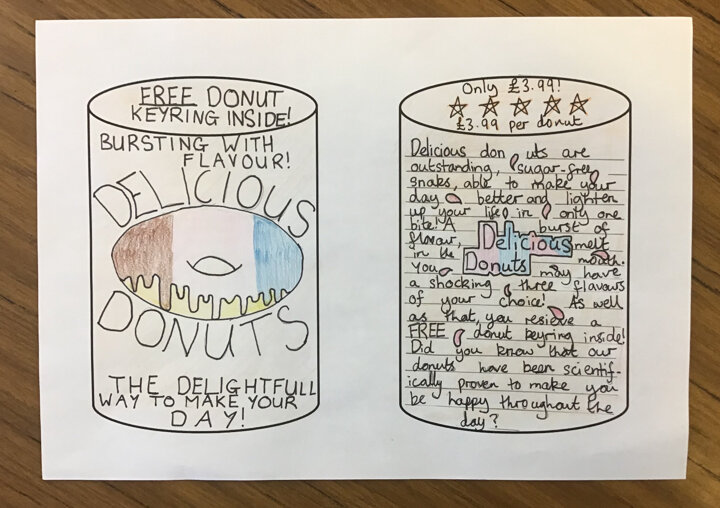 FREE DONUT
KEYRING INSIDE!
BURSTING WITH
FLAVOUR!
DELICIOUS
DONUTS
THE DELIGHTFULL
WAY TO MAKE YOUR
DAY!
Only £3.99!
£3.99 per donut
Delicious don uts are
outstanding, sugar-free
snaks, able to make your
day better and lighten
up your life in only one
bite! A burst of
flavour, Delicious melt
in the Donuts mouth.
You may have
a shocking three flavours
of your choice! As well
as that, you resieve a
FREE donut keyring inside!
Did you know that our
donuts have been scientif-
ically proven to make you
be happy throughout the
day?